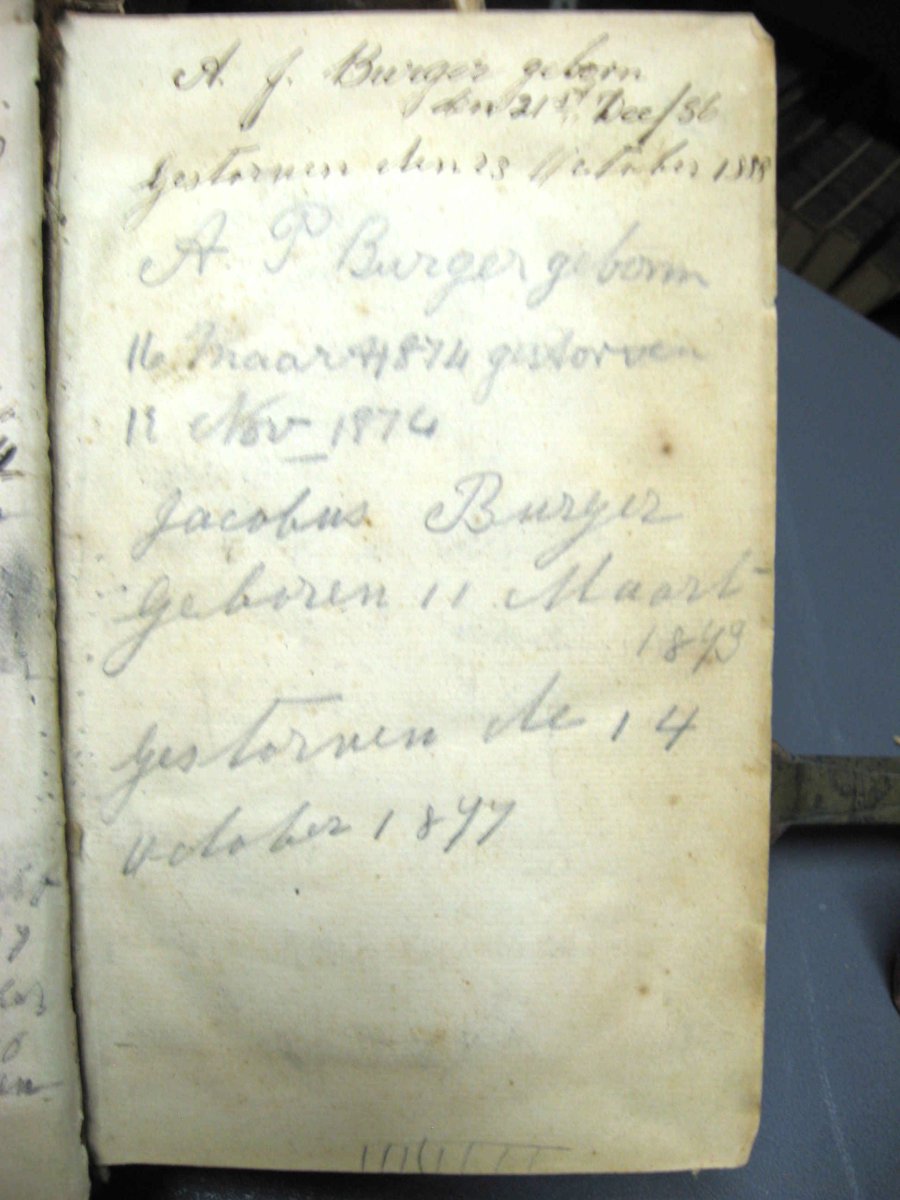 A. J. Burger geborn
den 21st Dec/86
Gestorven den 23 October 1888
A P Burger geborn
16 Maart 1874 gestorven
Nov 1874
Jacobus Burger
Geboren 11 Maart
1873
Gestorven de 14
October 1877